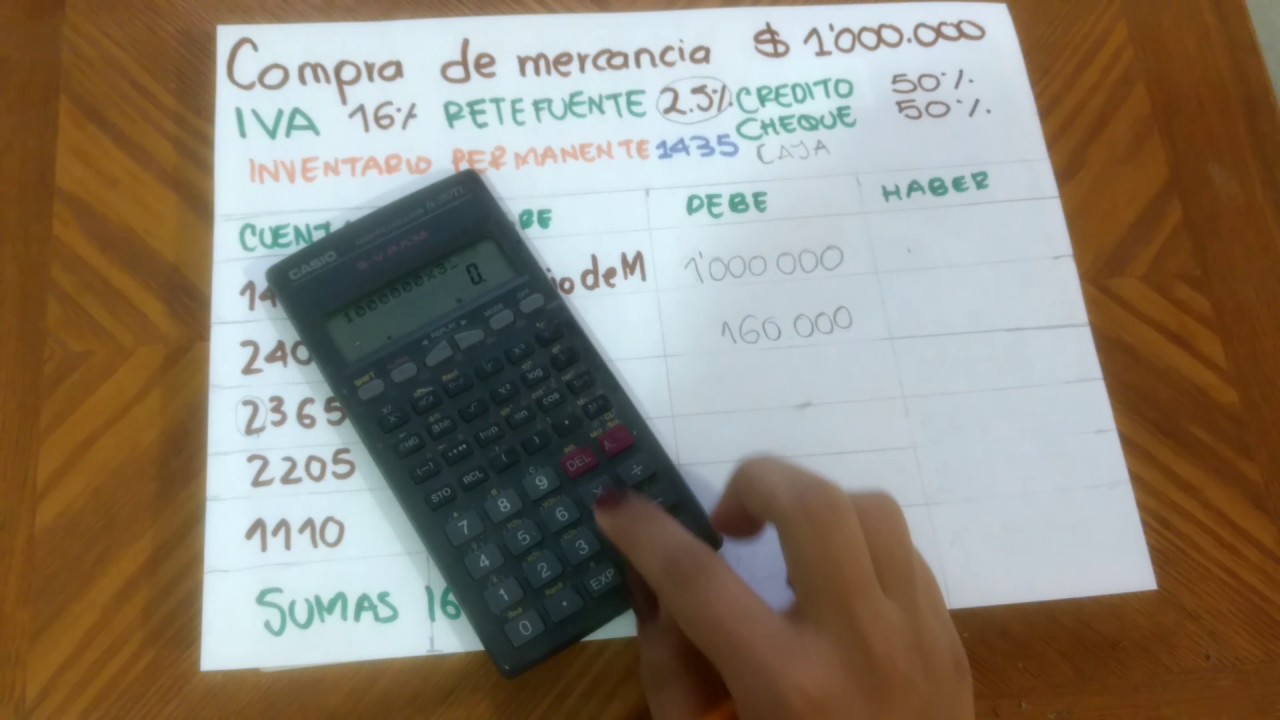 Compra de mercancia $ 1'000.000
IVA 16% RETEFUENTE 2.5% CREDITO 50%
CHEQUE 50%
INVENTARIO PERMANENTE 1435 CAJA
CUENT BE DEBE HABER
14 io de M 1'000 000
240 160 000
2365
2205
1110
SUMAS 16
CASIO
S-V.P.A.M.
0.
REPLAY
SHIFT
MODE
log
hyp sin cos
STO RCL
DEL
7 8 9
4 5 6 ×
1 2 3
0 . EXP
÷